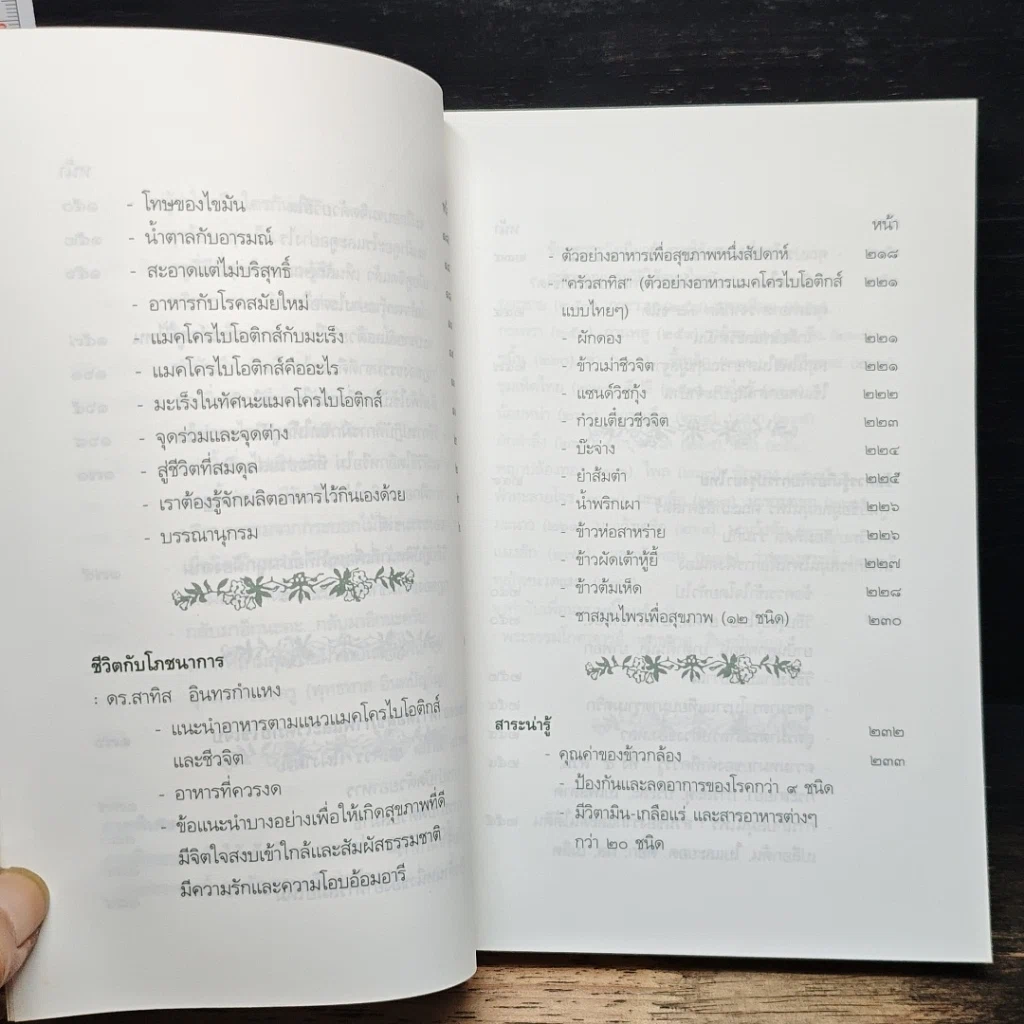 - โทษของไขมัน
- น้ำตาลกับอารมณ์
- สะอาดแต่ไม่บริสุทธิ์
- อาหารกับโรคสมัยใหม่
- แมคโครไบโอติกส์กับมะเร็ง
- แมคโครไบโอติกส์คืออะไร
- มะเร็งในทัศนะแมคโครไบโอติกส์
- จุดร่วมและจุดต่าง
- สู่ชีวิตที่สมดุล
- เราต้องรู้จักผลิตอาหารไว้กินเองด้วย
- บรรณานุกรม
ชีวิตกับโภชนาการ
: ดร.สาทิส อินทรกำแหง
- แนะนำอาหารตามแนวแมคโครไบโอติกส์
และชีวจิต
- อาหารที่ควรงด
- ข้อแนะนำบางอย่างเพื่อให้เกิดสุขภาพที่ดี
มีจิตใจสงบเข้าใกล้และสัมผัสธรรมชาติ
มีความรักและความโอบอ้อมอารี
หน้า
- ตัวอย่างอาหารเพื่อสุขภาพหนึ่งสัปดาห์ ๒๑๘
- "ครัวสาทิส" (ตัวอย่างอาหารแมคโครไบโอติกส์ ๒๒๑
แบบไทยๆ)
- ผักดอง ๒๒๑
- ข้าวเม่าชีวจิต ๒๒๑
- แซนด์วิชกุ้ง ๒๒๒
- ก๋วยเตี๋ยวชีวจิต ๒๒๓
- บ๊ะจ่าง ๒๒๔
- ยำส้มตำ ๒๒๕
- น้ำพริกเผา ๒๒๖
- ข้าวห่อสาหร่าย ๒๒๖
- ข้าวผัดเต้าหู้ยี้ ๒๒๗
- ข้าวต้มเห็ด ๒๒๘
- ชาสมุนไพรเพื่อสุขภาพ (๑๒ ชนิด) ๒๓๐
สาระน่ารู้ ๒๓๒
- คุณค่าของข้าวกล้อง ๒๓๓
- ป้องกันและลดอาการของโรคกว่า ๙ ชนิด
- มีวิตามิน-เกลือแร่ และสารอาหารต่างๆ
กว่า ๒๐ ชนิด